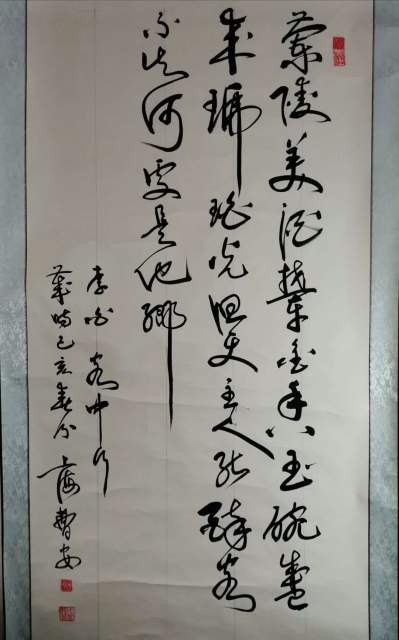 蘭陵美酒鬱金香玉碗盛
来琥珀光但使主人能醉客
不知何处是他鄉
李白 客中行
歲時己亥春分